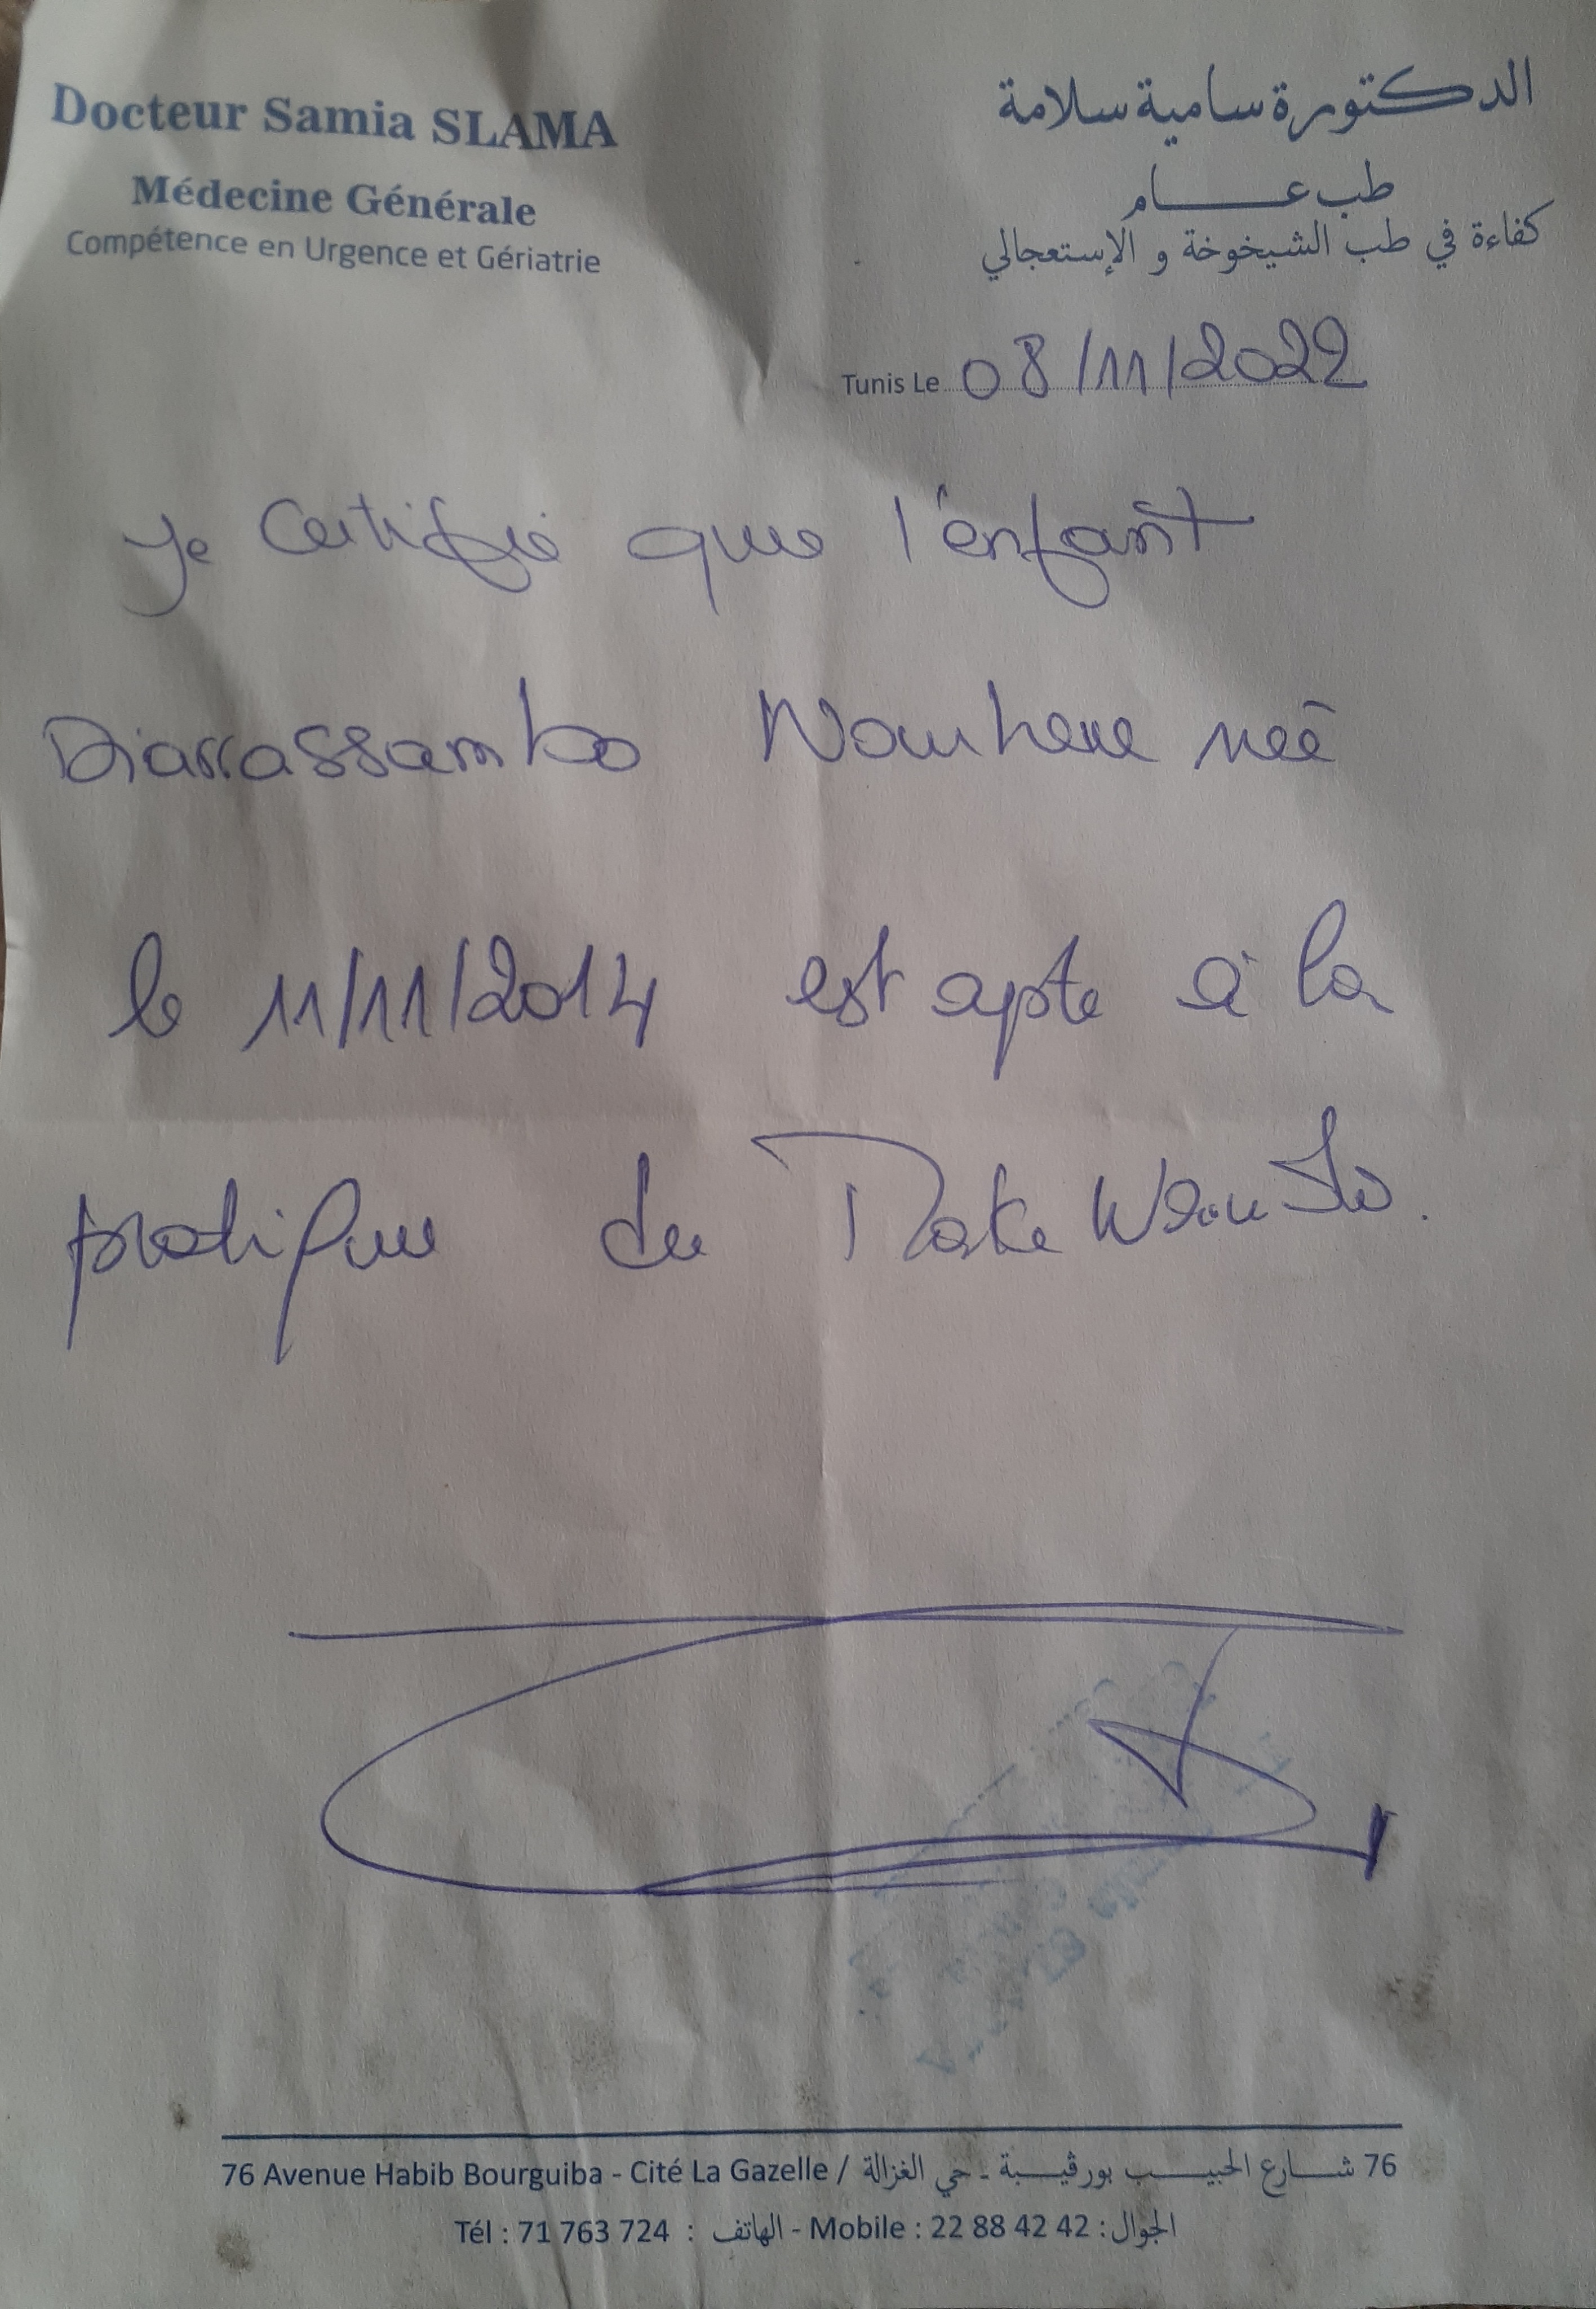 Docteur Samia SLAMA
Médecine Générale
Compétence en Urgence et Gériatrie
الدكتورة سامية سلامة
طب عام
كفاءة في طب الشيخوخة و الإستعجالي
Tunis Le 08/11/2022
Je certifie que l'enfant
Diarrassambo née
le 11/11/2014 est apte à la
pratique du
76 Avenue Habib Bourguiba - Cité La Gazelle / 76 شارع الحبيب بورڤيبة - حي الغزالة
Tél : 71 763 724 : الهاتف - Mobile : 22 88 42 42 : الجوال